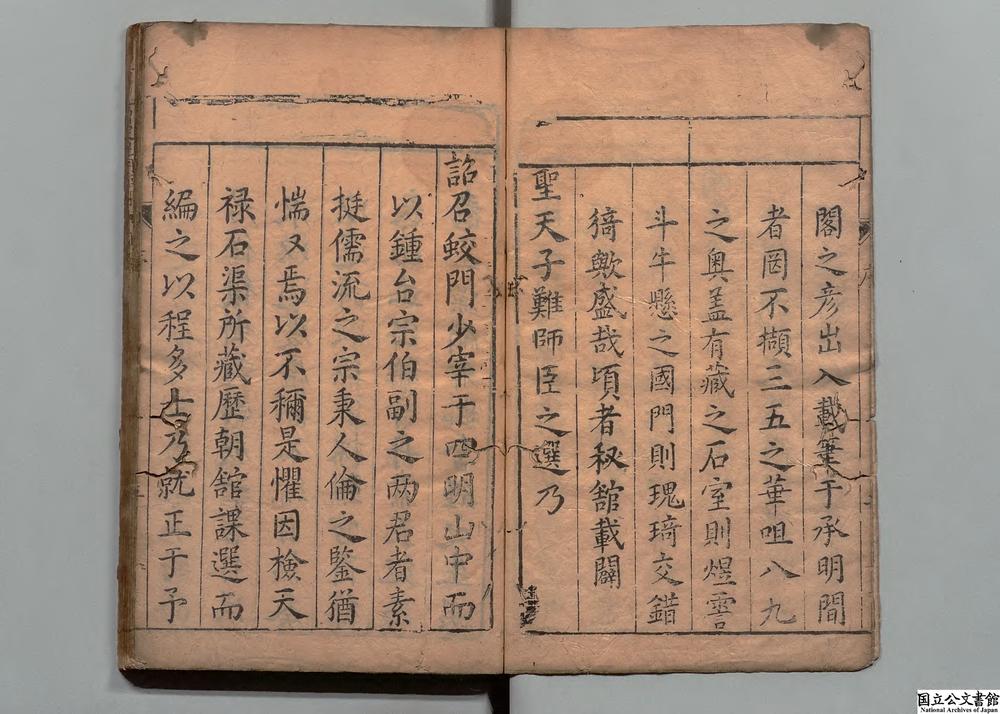 閣之彦出入載筆于承明間
者罔不擷三五之華咀八九
之奥盖有藏之石室則煜霅
斗牛懸之國門則瑰琦交錯
猗歟盛哉頃者秘舘載闢
聖天子難師臣之選乃
詔召蛟門少宰于四明山中而
以鍾台宗伯副之两君者素
挺儒流之宗秉人倫之鍳猶
惴〻焉以不稱是懼因檢天
禄石渠所藏歷朝舘課選而
編之以程多士乃就正于予
国立公文書館
National Archives of Japan